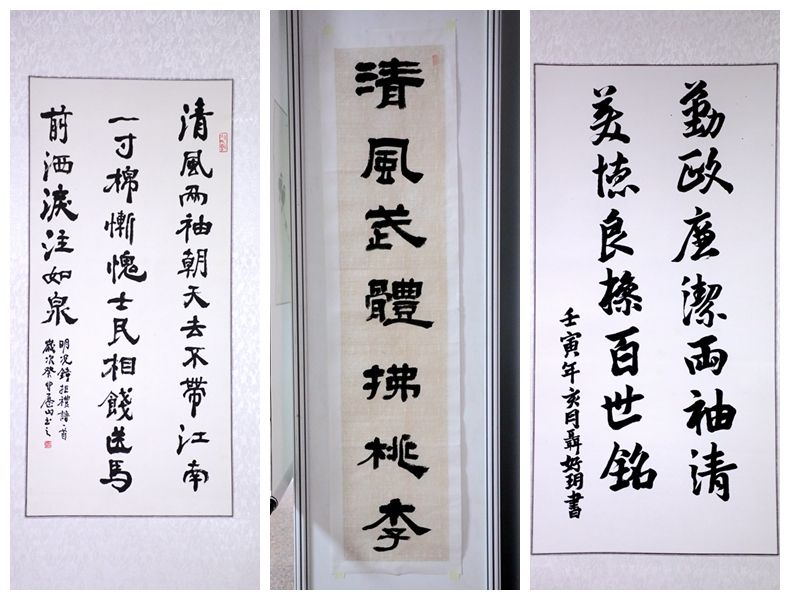 清風兩袖朝天去不帶江南
一寸棉慚愧士民相餞送馬
前洒淚注如泉
明况鍾拒禮詩一首
歲次癸卯山書之
清風武體拂桃李
勤政廉潔兩袖清
美德良操百世銘
壬寅年亥月聶好玥書